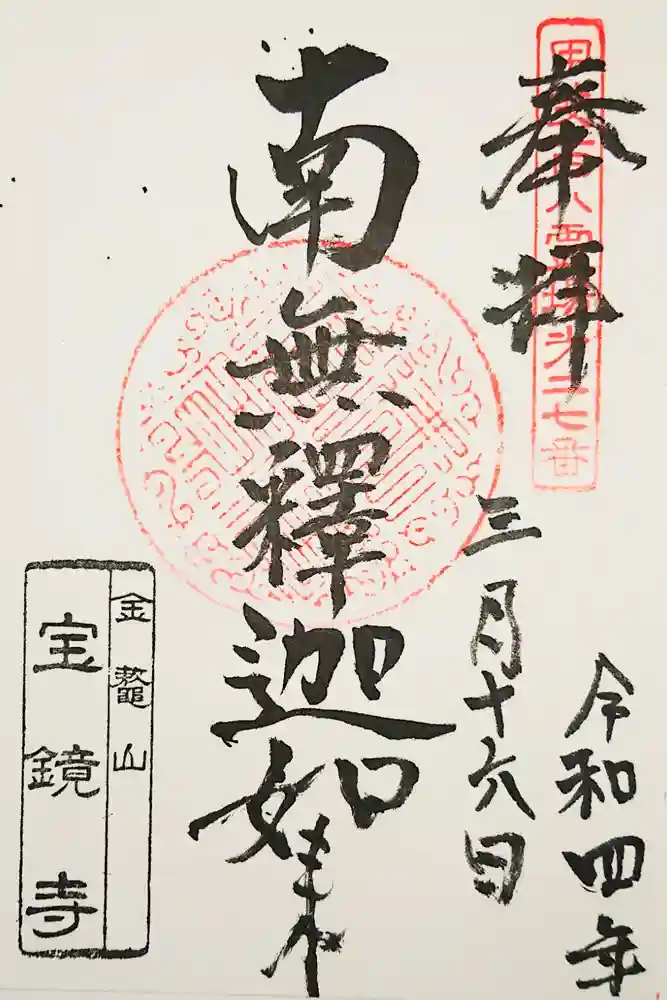 奉拝
甲斐百八霊場第二七番
令和四年
三月十六日
南無釋迦如来
金鼇山
宝鏡寺